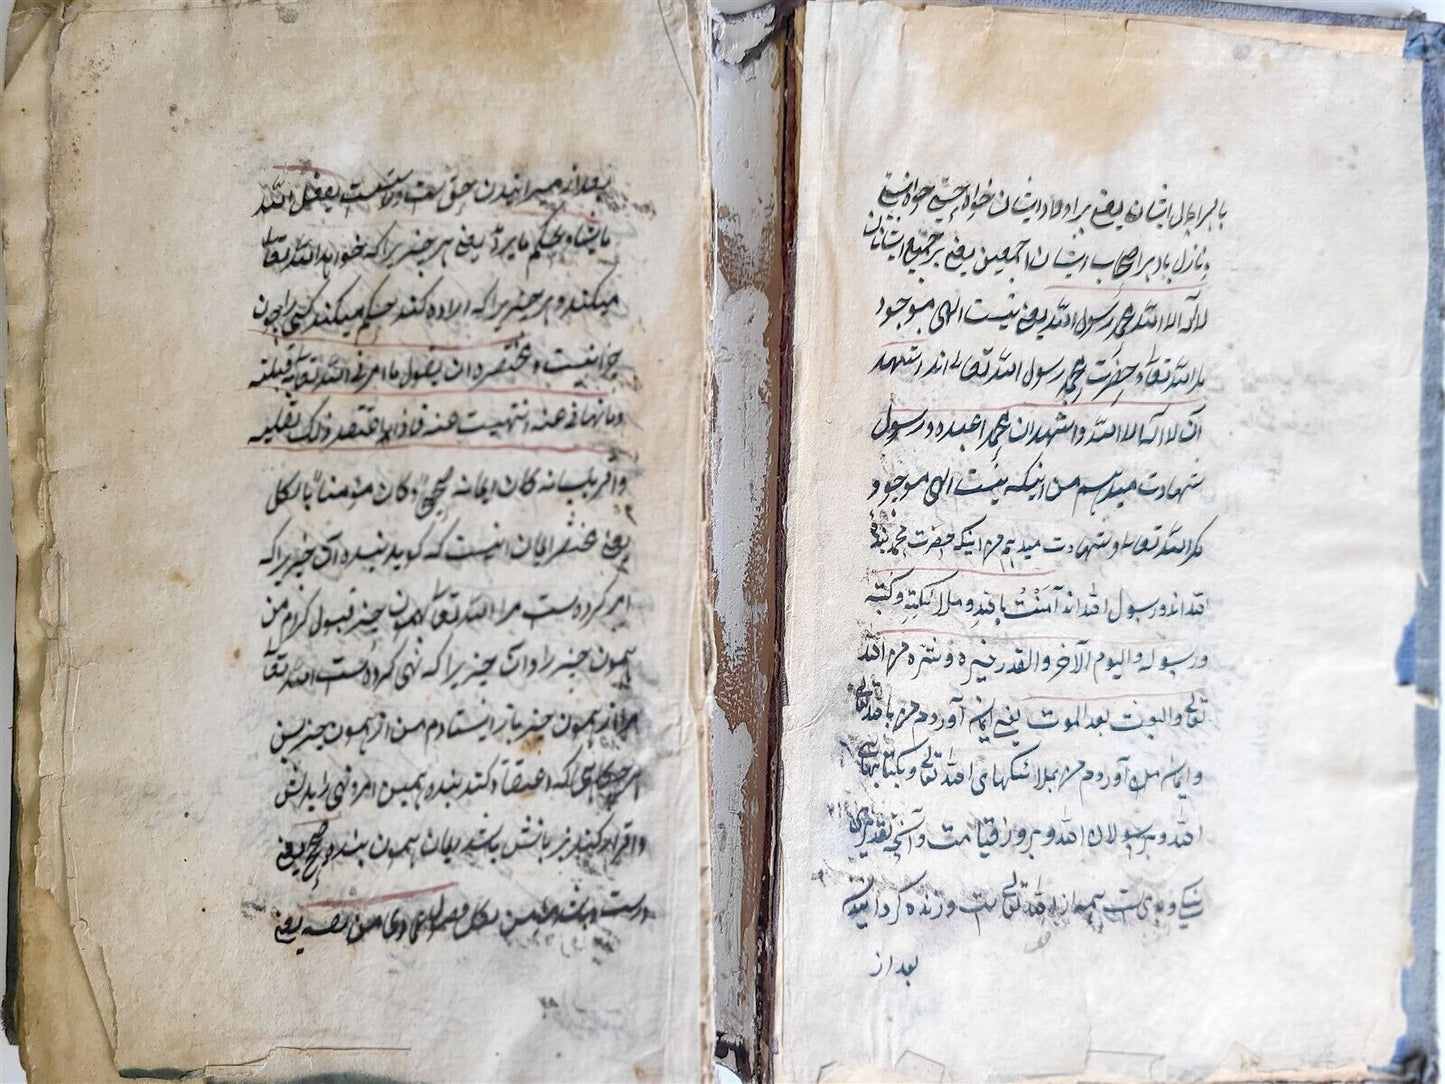 بال ایشان یعنی بر اولاد ایشان خواه حسی خواه
و نازل باد بر اصحاب ایشان اجمعین یعنی بر جمیع
لا اله الا الله محمد رسول الله یعنی نیست الهی موجود
مکر الله تعالی و حضرت محمد رسول الله تعالی اند اشهد
ان لا اله الا الله و اشهد ان محمدا عبده و رسوله
شهادت میدهم من اینکه نیست الهی موجود
مکر الله تعالی و شهادت میدهم من اینکه حضرت محمد بنده
الله اند و رسول الله اند آمنت بالله و ملائکته و کتبه
و رسوله و الیوم الآخر و القدر خیره و شره من الله
تعالی و البعث بعد الموت یعنی ایمان آوردم من بالله تعالی
و ایمان آوردم من بملائکهای الله تعالی و بکتابهای
الله و برسولان الله و بروز قیامت و آنکه تقدیر
نیکی و بدی همه از الله تعالی است و زنده کردانیدن
بعد از
بعد از میرانیدن حق است و راست یفعل الله
ما یشاء و یحکم ما یرید یعنی هر چیزیرا که خواهد الله تعالی
میکند و هر چیزیرا که اراده کند حکم میکند کسی را چون
و چرا نیست و مختصره ان یقول ما امرنی الله تعالی قبلته
و ما نهانی عنه انتهیت عنه فاذا اعتقد ذلک بقلبه
و اقر بلسانه کان ایمانه صحیحا و کان مؤمنا بالکل
یعنی مختصر ایمان اینست که کوید بنده آن چیزیرا که
امر کرده است مرا الله تعالی همون چیز قبول کردم من
همون چیز را و آن چیزیرا که نهی کرده است الله تعالی
مرا از همون چیز باز ایستادم من از همون چیز پس
هر که اعتقاد کند بنده همین امر و نهی را بدلش
و اقرار کند بزبانش باشد ایمان همون بنده صحیح یعنی
درست و باشد مؤمن بکل یعنی